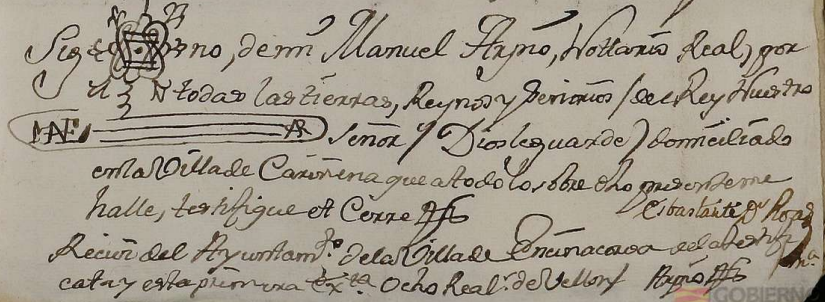 Sig no, de mi Manuel Arpio, Nottario Real, y por
todas las tierras, Reynos y Señorios (del Rey Nuestro
Señor (Dios le guarde) domiciliado
en la Villa de Cariñena que a todo lo sobre dho presente me
halle, testifique et Cerre
Recivi del Ayuntamto de la Villa de Encinacorva de la testifi
cata y esta primera exta Ocho Reals de Vellon
GOBIERNO